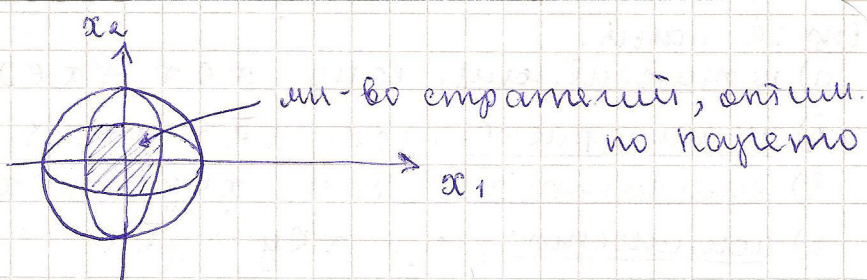 x₂
мн-во стратегий, оптим.
по Парето
x₁